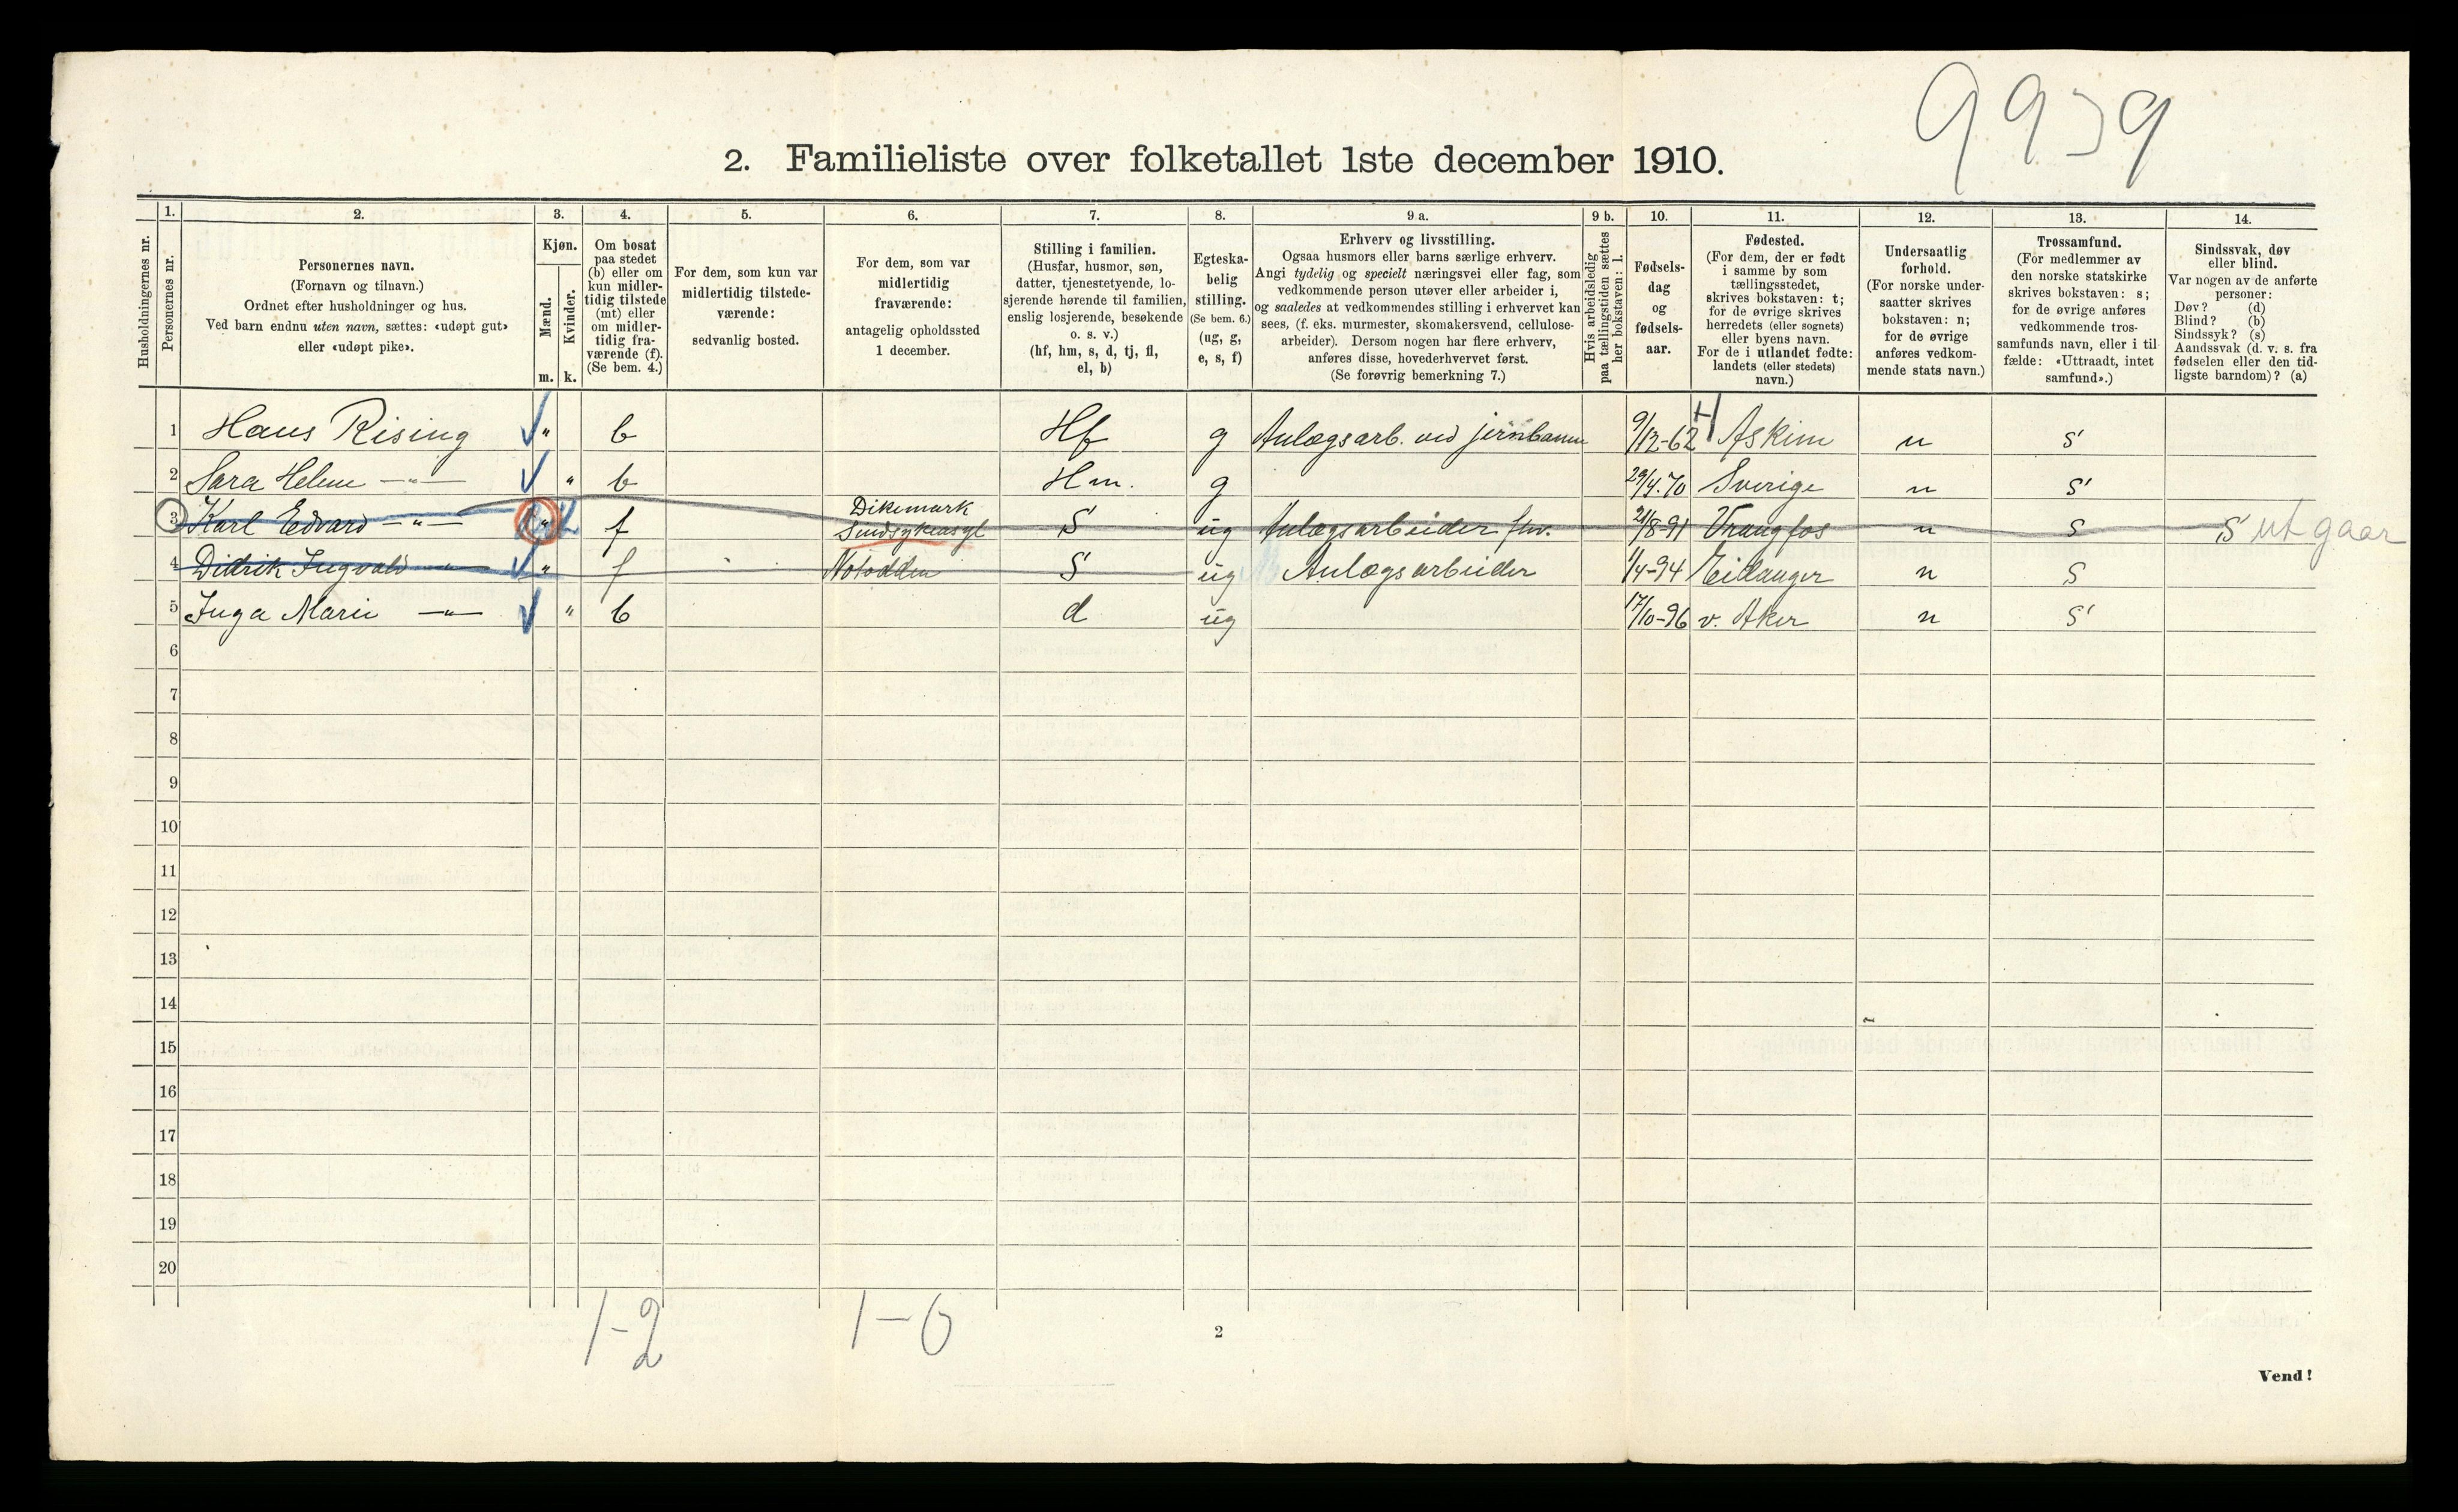 9939
2. Familieliste over folketallet 1ste december 1910.
Husholdningernes nr.
1.
Personernes nr.
2.
Personernes navn.
(Fornavn og tilnavn.)
Ordnet efter husholdninger og hus.
Ved barn endnu uten navn, sættes: «udøpt gut»
eller «udøpt pike».
3.
Kjøn.
Mænd.
m.
Kvinder.
k.
4.
Om bosat
paa stedet
(b) eller om
kun midler-
tidig tilstede
(mt) eller
om midler-
tidig fra-
værende (f).
(Se bem. 4.)
5.
For dem, som kun var
midlertidig tilstede-
værende:
sedvanlig bosted.
6.
For dem, som var
midlertidig
fraværende:
antagelig opholdssted
1 december.
7.
Stilling i familien.
(Husfar, husmor, søn,
datter, tjenestetyende, lo-
sjerende hørende til familien,
enslig losjerende, besøkende
o. s. v.)
(hf, hm, s, d, tj, fl,
el, b)
8.
Egteska-
belig
stilling.
(Se bem. 6.)
(ug, g,
e, s, f)
9 a.
Erhverv og livsstilling.
Ogsaa husmors eller barns særlige erhverv.
Angi tydelig og specielt næringsvei eller fag, som
vedkommende person utøver eller arbeider i,
og saaledes at vedkommendes stilling i erhvervet kan
sees, (f. eks. murmester, skomakersvend, cellulose-
arbeider). Dersom nogen har flere erhverv,
anføres disse, hovederhvervet først.
(Se forøvrig bemerkning 7.)
9 b.
Hvis arbeidsledig
paa tællingstiden sættes
her bokstaven: l.
10.
Fødsels-
dag
og
fødsels-
aar.
11.
Fødested.
(For dem, der er født
i samme by som
tællingsstedet,
skrives bokstaven: t;
for de øvrige skrives
herredets (eller sognets)
eller byens navn.
For de i utlandet fødte:
landets (eller stedets)
navn.)
12.
Undersaatlig
forhold.
(For norske under-
saatter skrives
bokstaven: n;
for de øvrige
anføres vedkom-
mende stats navn.)
13.
Trossamfund.
(For medlemmer av
den norske statskirke
skrives bokstaven: s;
for de øvrige anføres
vedkommende tros-
samfunds navn, eller i til-
fælde: «Uttraadt, intet
samfund».)
14.
Sindssvak, døv
eller blind.
Var nogen av de anførte
personer:
Døv? (d)
Blind? (b)
Sindssyk? (s)
Aandssvak (d. v. s. fra
fødselen eller den tid-
ligste barndom)? (a)
1 Hans Rising " b Hf g Anlægsarb. ved jernbanen 9/12-62 Askim n s
2 Sara Helene —"— " b Hm. g 29/4.70 Sverige n s
3 Karl Edvard —"— " f Dikemark Sindsykeasyl S ug Anlægsarbeider 21/8-91 Vrangfos n s S utgaar
4 Didrik Ingvald —"— " f Notodden S ug Anlægsarbeider 1/4-94 Eidanger n s
5 Inga Marie —"— " b d ug 17/10-96 v. Aker n s
6
7
8
9
10
11
12
13
14
15
16
17
18
19
20
1-2
1-0
2
Vend!